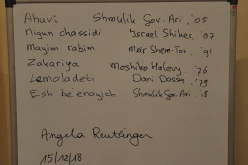 Ahavi Shmulik Gov. Ari. '05
Nigun chassidi Israel Shiker. '07
Mayim rabim Meir Shem-Tov. '91
Zakariya Moshiko Halevy. '76
Lemoladeti Dani Dassa. '79
Esh be'enayich Shmulik Gov. Ari. '18
Angela Reutlinger
15/12/18